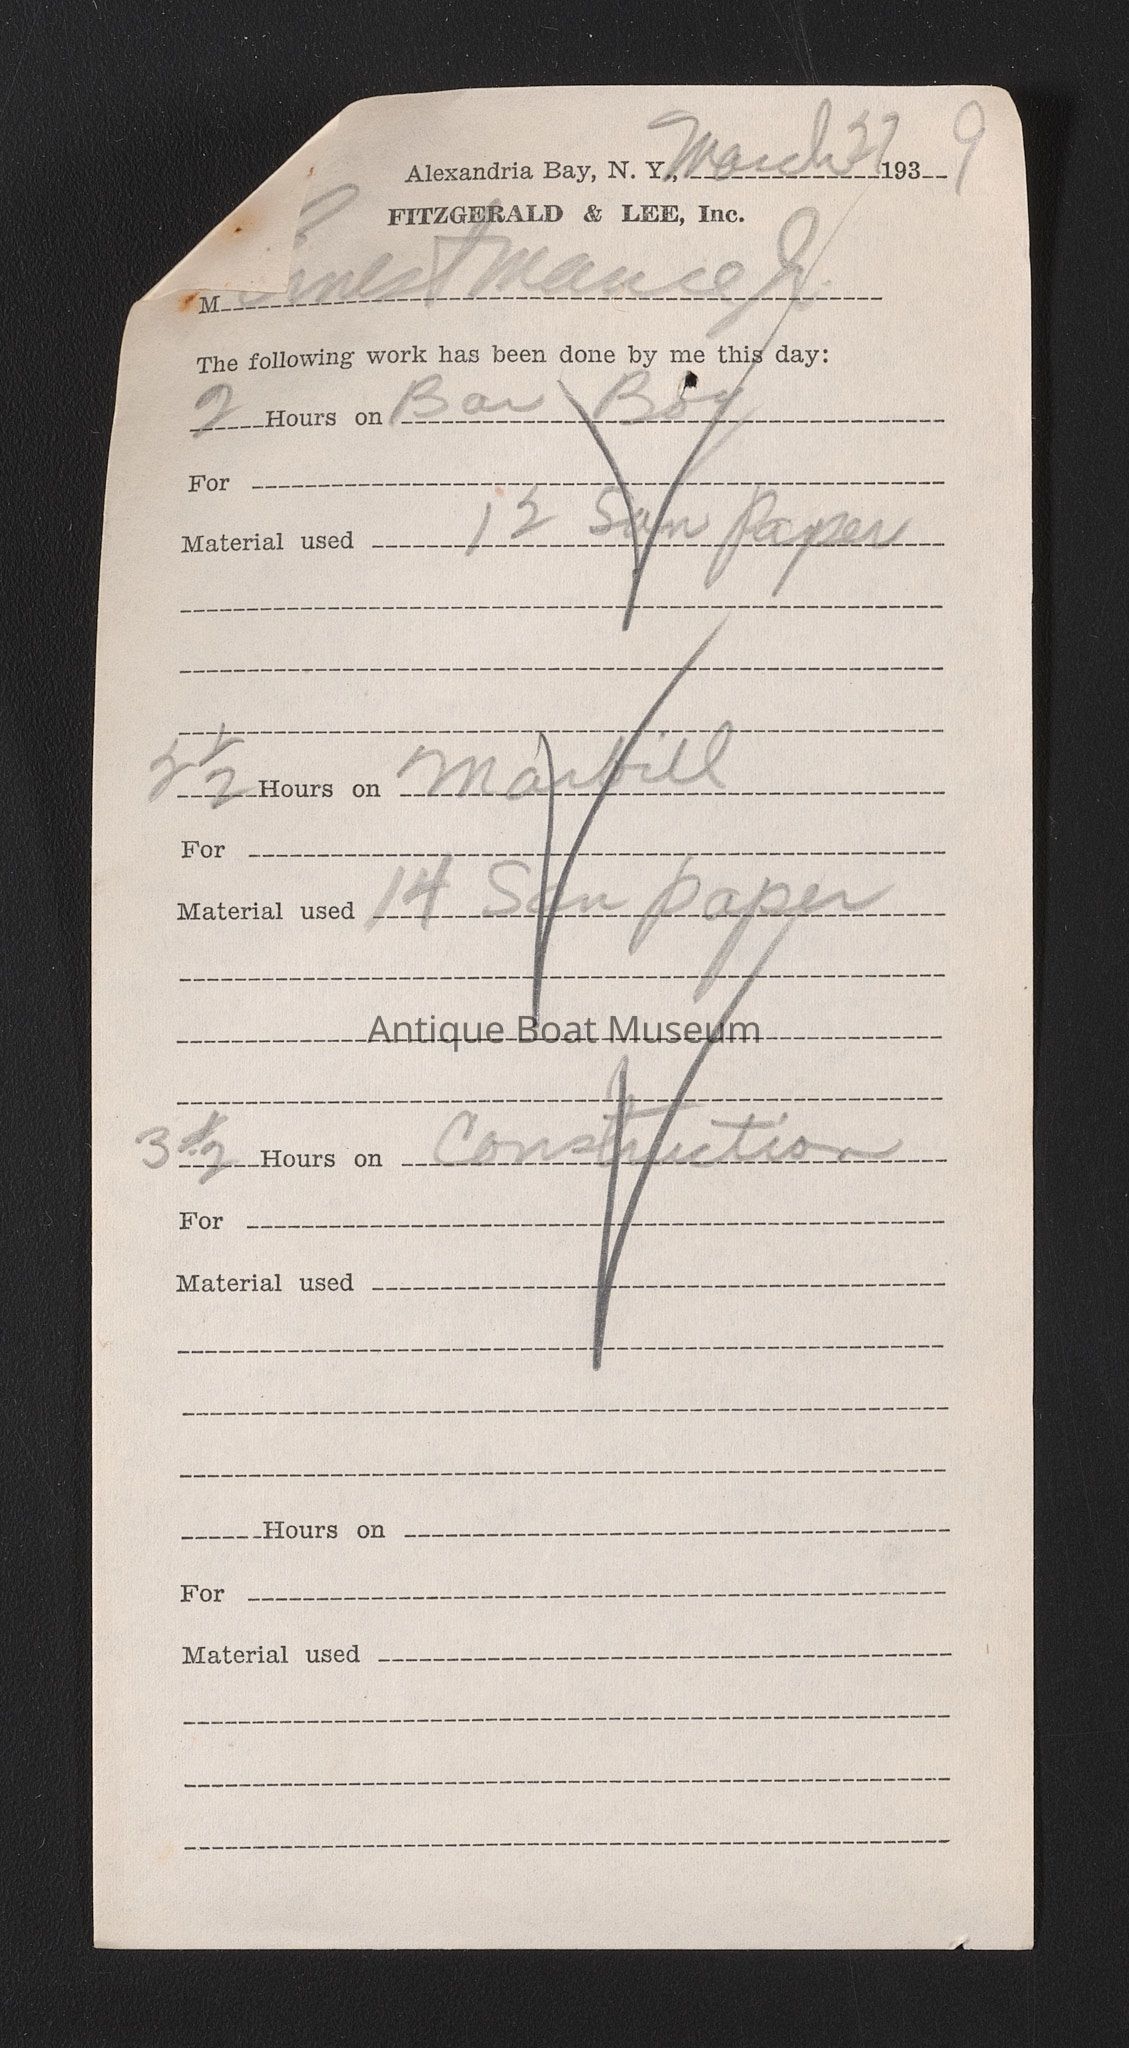 Alexandria Bay, N. Y., March 27 1939
FITZGERALD & LEE, Inc.
M Ernest Mance Jr.
The following work has been done by me this day:
2 Hours on Bar Boy
For
Material used 12 San Paper
Hours on
For
Material used 14 San paper
Antique Boat Museum
3 1/2 Hours on Construction
For
Material used
Hours on
For
Material used